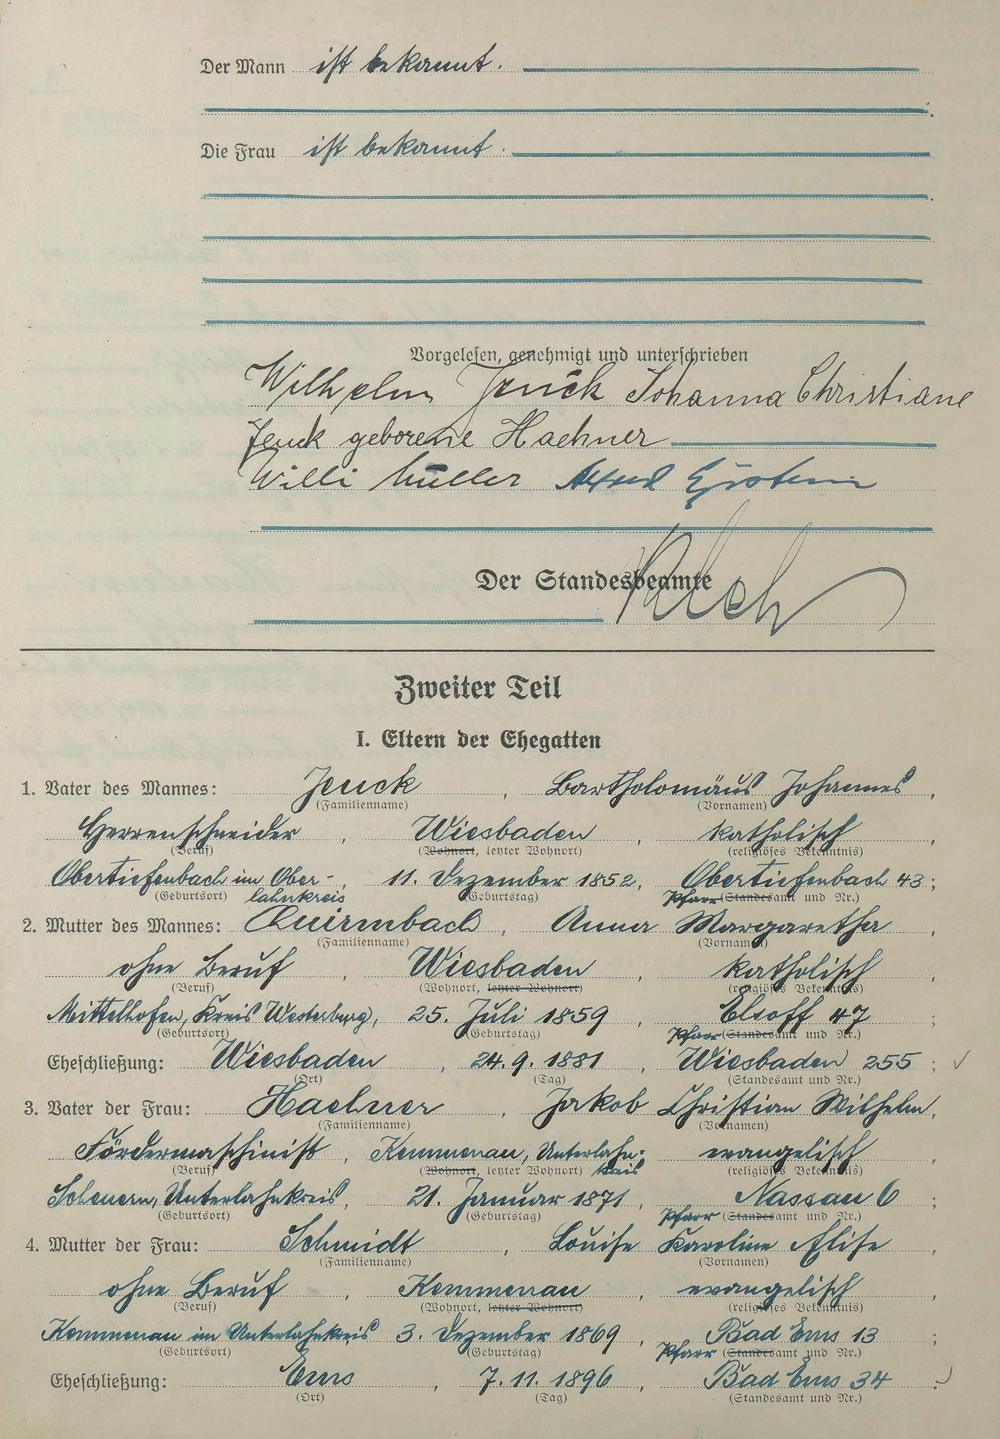 Der Mann ist bekannt.
Die Frau ist bekannt.
Vorgelesen, genehmigt und unterschrieben
Wilhelm Jeuck Johanna Christiane
Jeuck geborene Haehner
Willi Müller Alfred
Der Standesbeamte
Zweiter Teil
I. Eltern der Ehegatten
1. Vater des Mannes: Jeuck, Bartholomäus Johannes,
(Familienname) (Vornamen)
Herrenschneider, Wiesbaden, katholisch
(Beruf) (Wohnort, letzter Wohnort) (religiöses Bekenntnis)
Obertiefenbach im Ober-, 11. Dezember 1852, Obertiefenbach 43;
(Geburtsort) lahnkreis (Geburtstag) Pfarr (Standesamt und Nr.)
2. Mutter des Mannes: Quirmbach, Anna Margaretha,
(Familienname) (Vornamen)
ohne Beruf, Wiesbaden, katholisch
(Beruf) (Wohnort, letzter Wohnort) (religiöses Bekenntnis)
Mittelhofen, Kreis Westerburg, 25. Juli 1859, Elsoff 47;
(Geburtsort) (Geburtstag) Pfarr (Standesamt und Nr.)
Eheschließung: Wiesbaden, 24.9.1881, Wiesbaden 255;
(Ort) (Tag) (Standesamt und Nr.)
3. Vater der Frau: Haehner, Jakob Christian Wilhelm,
(Familienname) (Vornamen)
Fördermaschinist, Kemmenau, Unterlahn:, evangelisch
(Beruf) (Wohnort, letzter Wohnort) kreis (religiöses Bekenntnis)
Scheuern, Unterlahnkreis, 21. Januar 1871, Nassau 6;
(Geburtsort) (Geburtstag) Pfarr (Standesamt und Nr.)
4. Mutter der Frau: Schmidt, Louise Karoline Elise,
(Familienname) (Vornamen)
ohne Beruf, Kemmenau, evangelisch
(Beruf) (Wohnort, letzter Wohnort) (religiöses Bekenntnis)
Kemmenau im Unterlahnkreis, 3. Dezember 1869, Bad Ems 13;
(Geburtsort) (Geburtstag) Pfarr (Standesamt und Nr.)
Eheschließung: Ems, 7.11.1896, Bad Ems 34.
(Ort) (Tag) (Standesamt und Nr.)